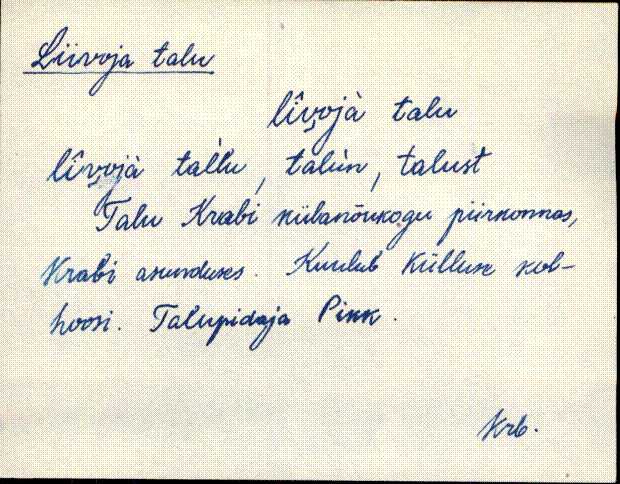 Liivoja talu
lîv̭ojà talu
lîv̭ojà tàl̀lu, talùn, talust
Talu Krabi külanõukogu piirkonnas,
Krabi asunduses. Kuulub Külluse kol-
hoosi. Talupidaja Pikk.
Krb.